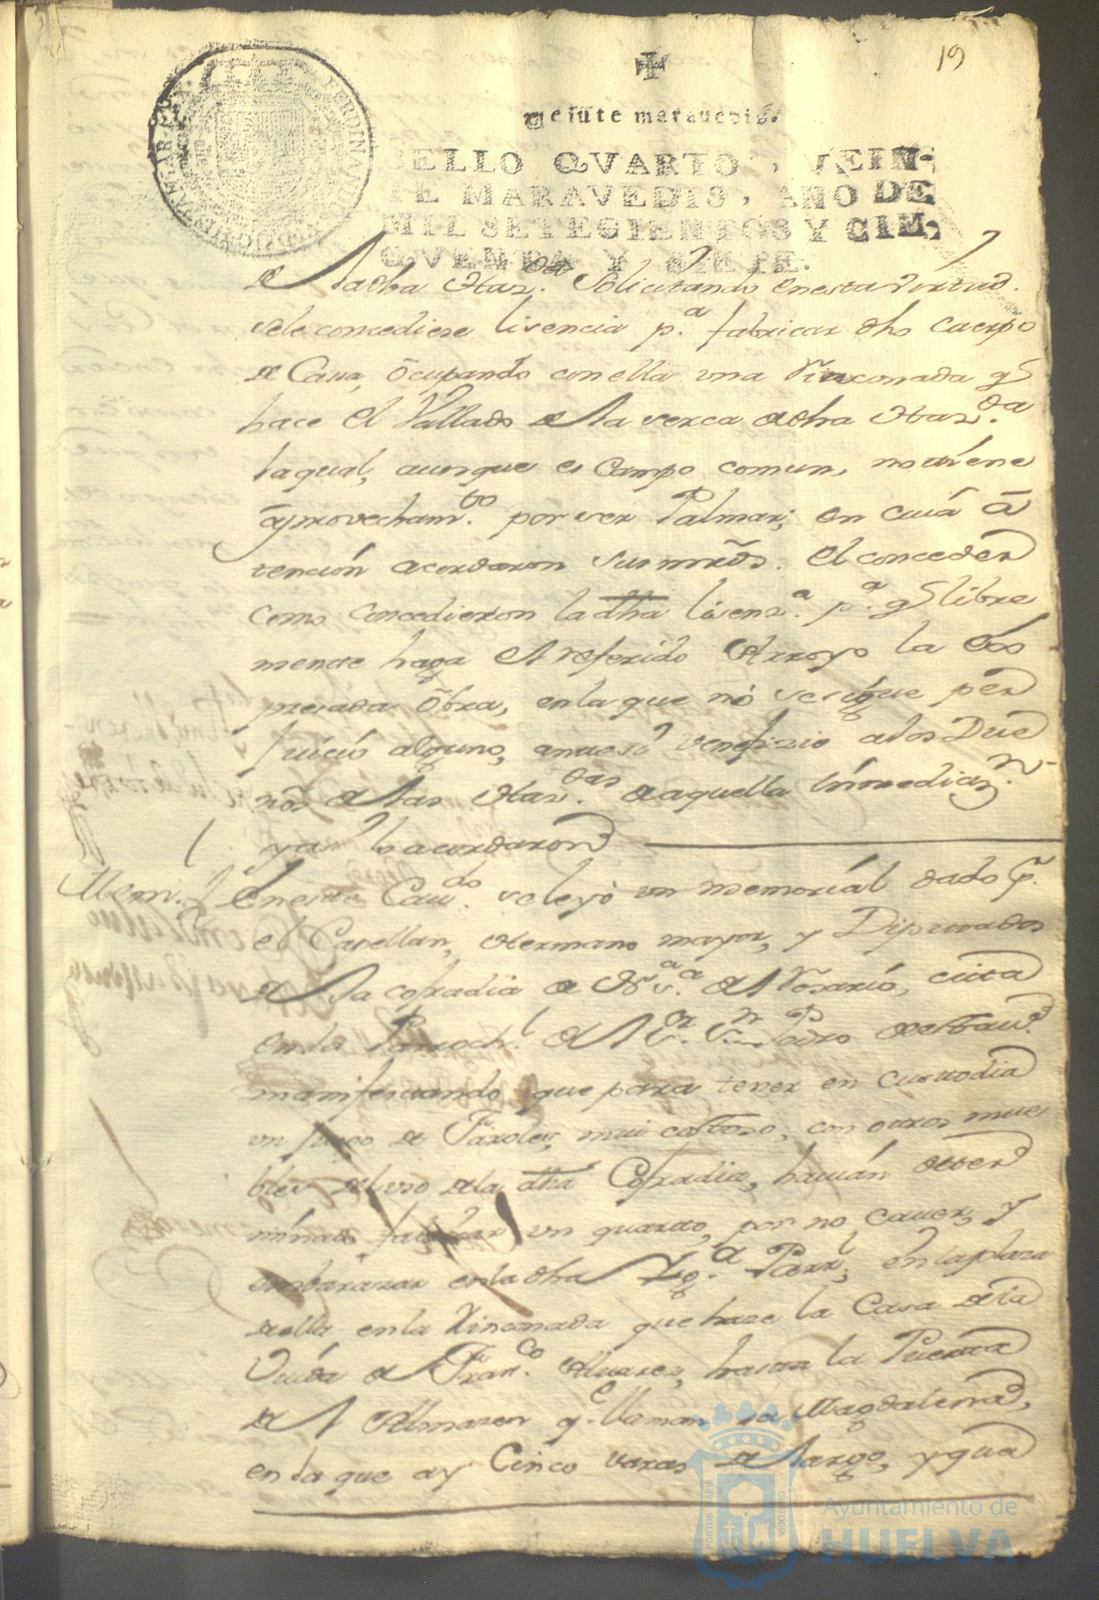 19
Veiute maravedis.
SELLO QVARTO, VEIN-
TE MARAVEDIS, AÑO DE
MIL SETECIENTOS Y CIN-
QVENTA Y SIETE.
de la dha Haz.da Solicitando en esta virtud.
se le concediese lisencia p.a fabricar dho Cuerpo
de Casa, ocupando con ella una Rinconada q̃
hace el Vallado de la serca de dha Haz.da
la qual, aunque es Campo comun, no tiene
aprovecham.to por ser Palmar; en cuia a
tencion acordaron sus mrds. el conceder
como concedieron la dha lisenz.a p.a q̃ libre
mente haga el referido Arroyo la es
presada obra, en la que no se sigue per
juicio alguno, antes si venefizio a los Due
ños de las Haz.das de aquella inmediaz.n
y asi lo acordaron
Mem.l En este Cav.do se leyó un memorial dado p.r
el Capellan, Hermano mayor, y Diputados
de la cofradia de N.a S.a del Rosario, cita
en la Parroch.l de el S.r S.n Pedro de esta v.a
manifestando que para tener en custodia
un juego de Faroles, mui costoso, con otros mue
bles del uso de la dha Cofradia, havian deter
minado fabricar un quarto, por no caver, y
embarazar en la dha Ygl.a Parr.l, en la plaza
de ella, en la Rinconada que haze la Casa de la
Viuda de Fran.co Alvarez, hasta la Puerta
de el Almazen q.e llaman la Magdalena,
en la que ay Cinco varas de largo, y gua
Ayuntamiento de
HUELVA